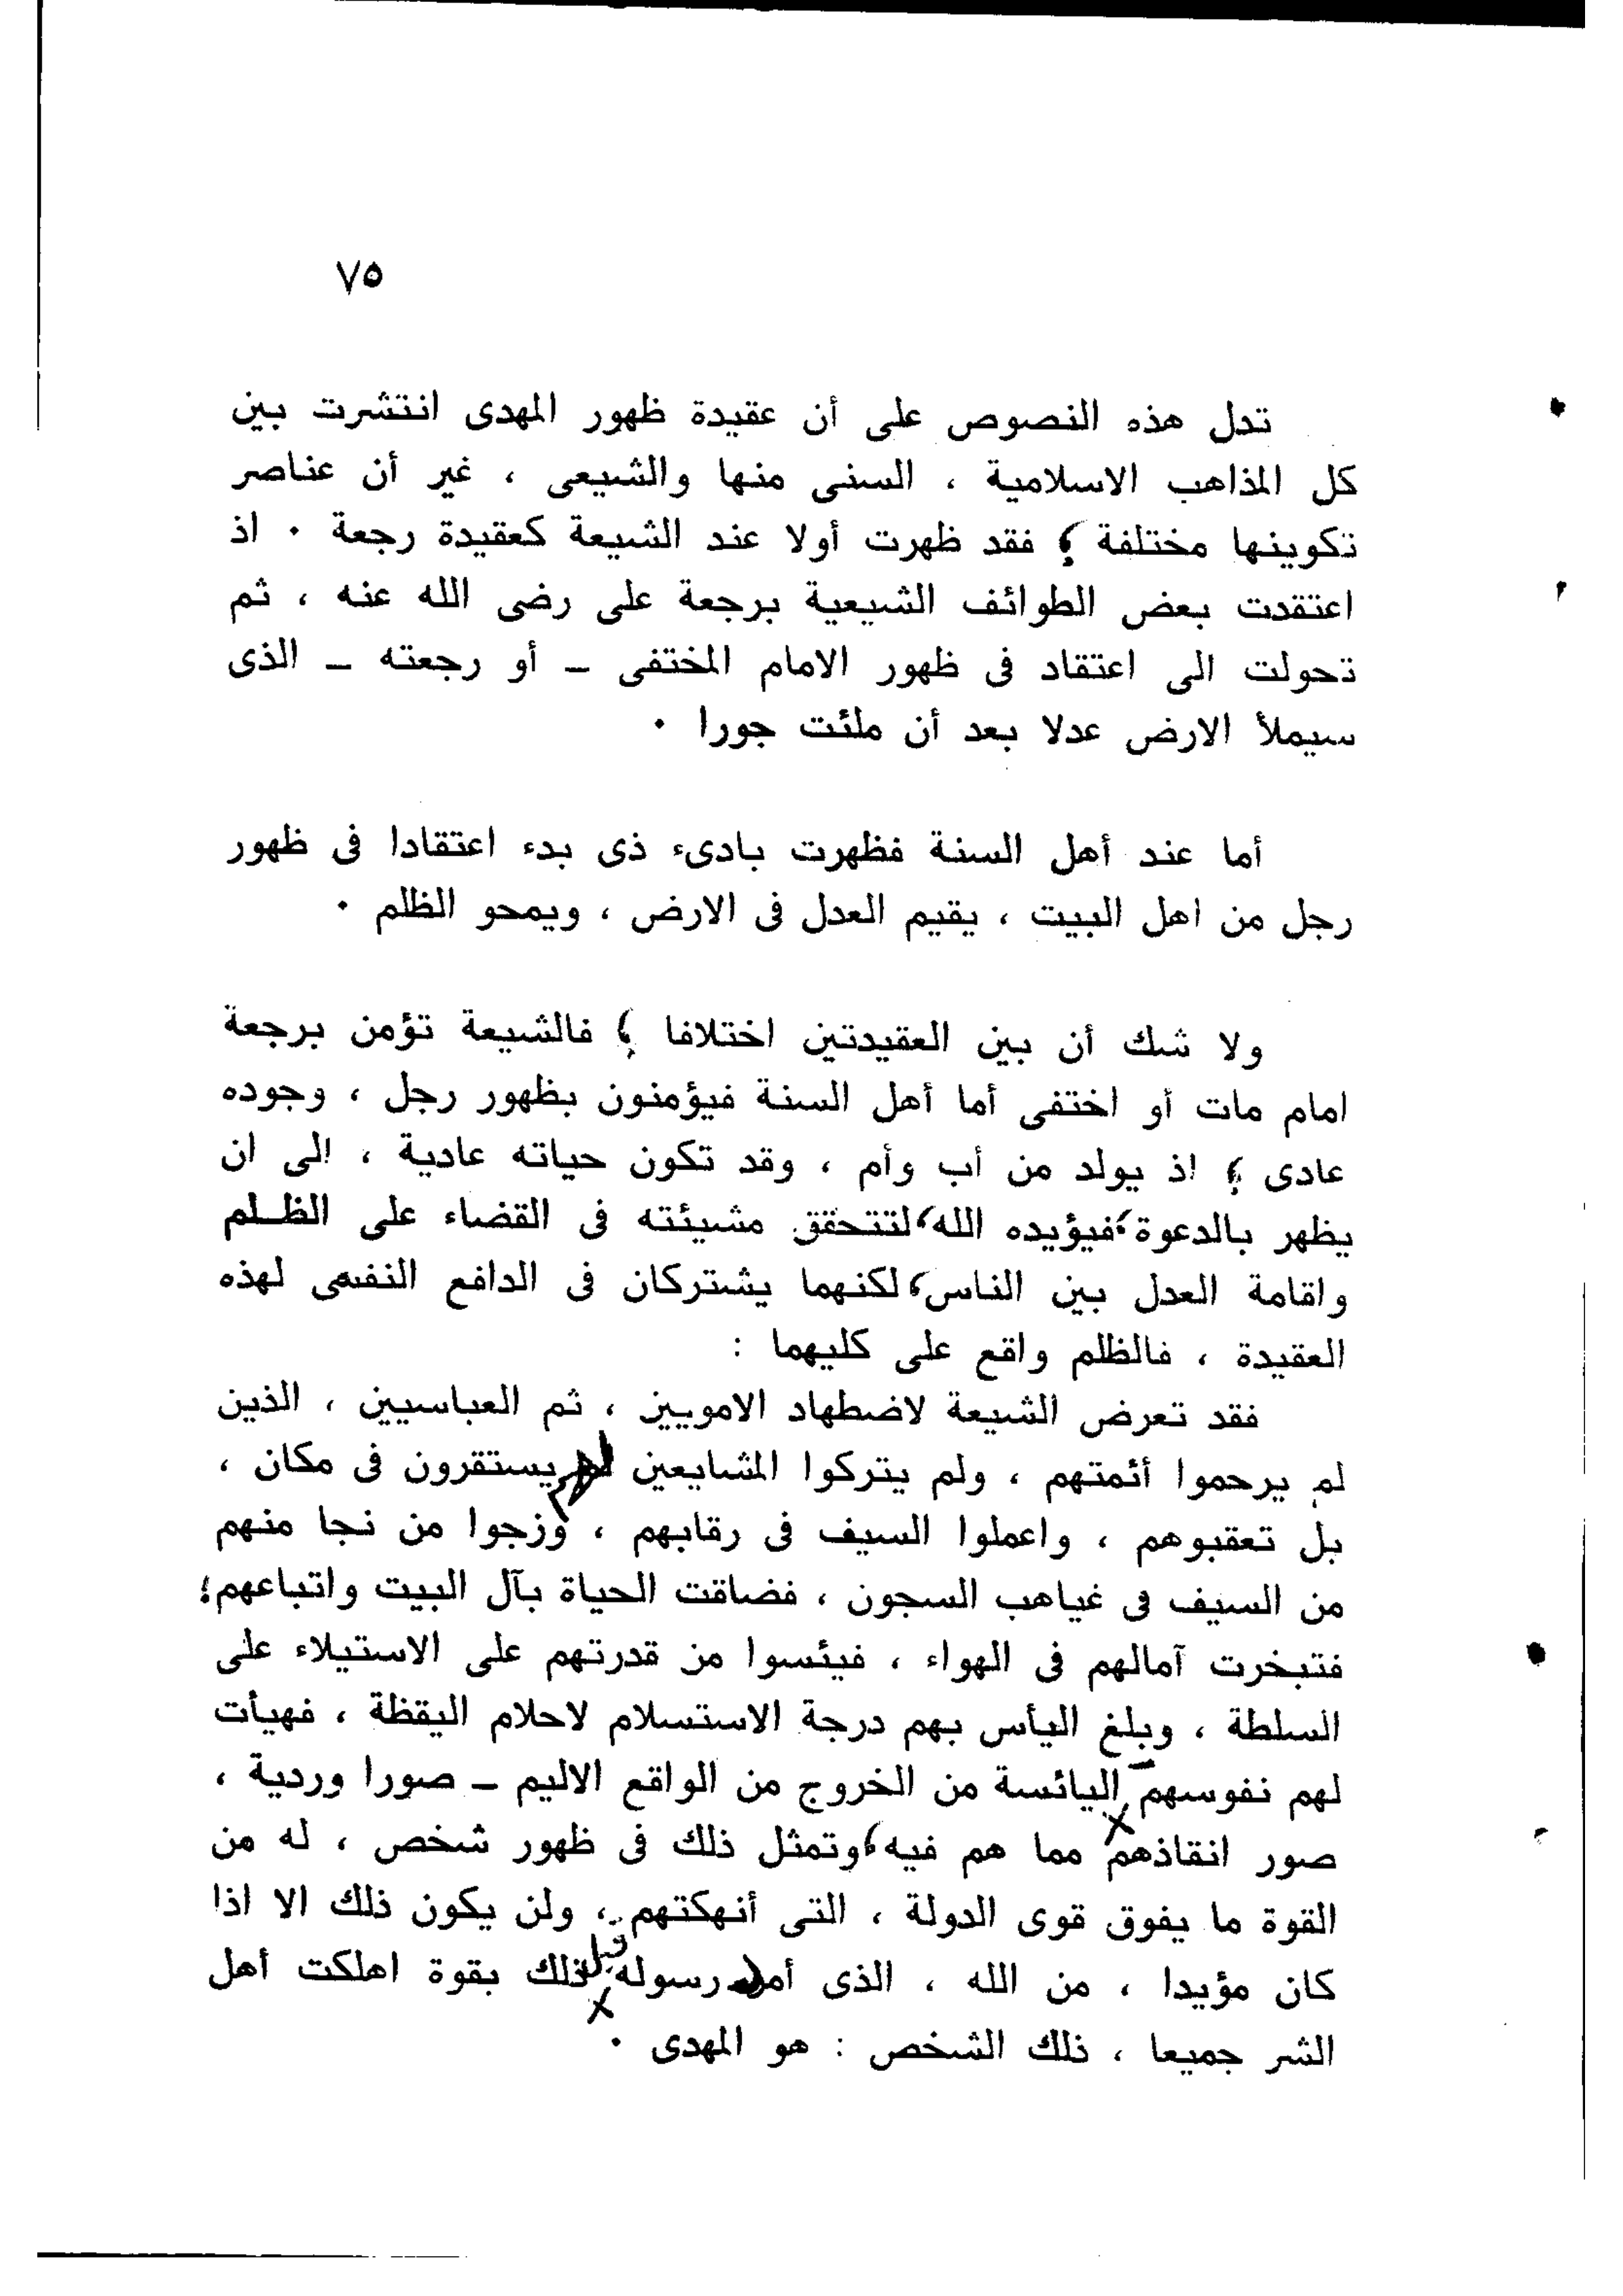 ٧٥
تدل هذه النصوص على أن عقيدة ظهور المهدى انتشرت بين
كل المذاهب الاسلامية ، السنى منها والشيعى ، غير أن عناصر
تكوينها مختلفة ؛ فقد ظهرت أولا عند الشيعة كعقيدة رجعة ٠ اذ
اعتقدت بعض الطوائف الشيعية برجعة على رضى الله عنه ، ثم
تحولت الى اعتقاد فى ظهور الامام المختفى – أو رجعته – الذى
سيملأ الارض عدلا بعد أن ملئت جورا ٠
أما عند أهل السنة فظهرت بادىء ذى بدء اعتقادا فى ظهور
رجل من اهل البيت ، يقيم العدل فى الارض ، ويمحو الظلم ٠
ولا شك أن بين العقيدتين اختلافا ؛ فالشيعة تؤمن برجعة
امام مات أو اختفى أما أهل السنة فيؤمنون بظهور رجل ، وجوده
عادى ؛ اذ يولد من أب وأم ، وقد تكون حياته عادية ، الى ان
يظهر بالدعوة ، فيؤيده الله ، لتتحقق مشيئته فى القضاء على الظلم
واقامة العدل بين الناس ، لكنهما يشتركان فى الدافع النفسى لهذه
العقيدة ، فالظلم واقع على كليهما :
فقد تعرض الشيعة لاضطهاد الامويين ، ثم العباسيين ، الذين
لم يرحموا أئمتهم ، ولم يتركوا المشايعين لهم يستقرون فى مكان ،
بل تعقبوهم ، واعملوا السيف فى رقابهم ، وزجوا من نجا منهم
من السيف فى غياهب السجون ، فضاقت الحياة بآل البيت واتباعهم؛
فتبخرت آمالهم فى الهواء ، فيئسوا من قدرتهم على الاستيلاء على
السلطة ، وبلغ اليأس بهم درجة الاستسلام لاحلام اليقظة ، فهيأت
لهم نفوسهم – اليائسة من الخروج من الواقع الاليم – صورا وردية ،
صور انقاذهم مما هم فيه ، وتمثل ذلك فى ظهور شخص ، له من
القوة ما يفوق قوى الدولة ، التى أنهكتهم ، ولن يكون ذلك الا اذا
كان مؤيدا ، من الله ، الذى أمد رسوله قبل ذلك بقوة اهلكت أهل
الشر جميعا ، ذلك الشخص : هو المهدى ٠